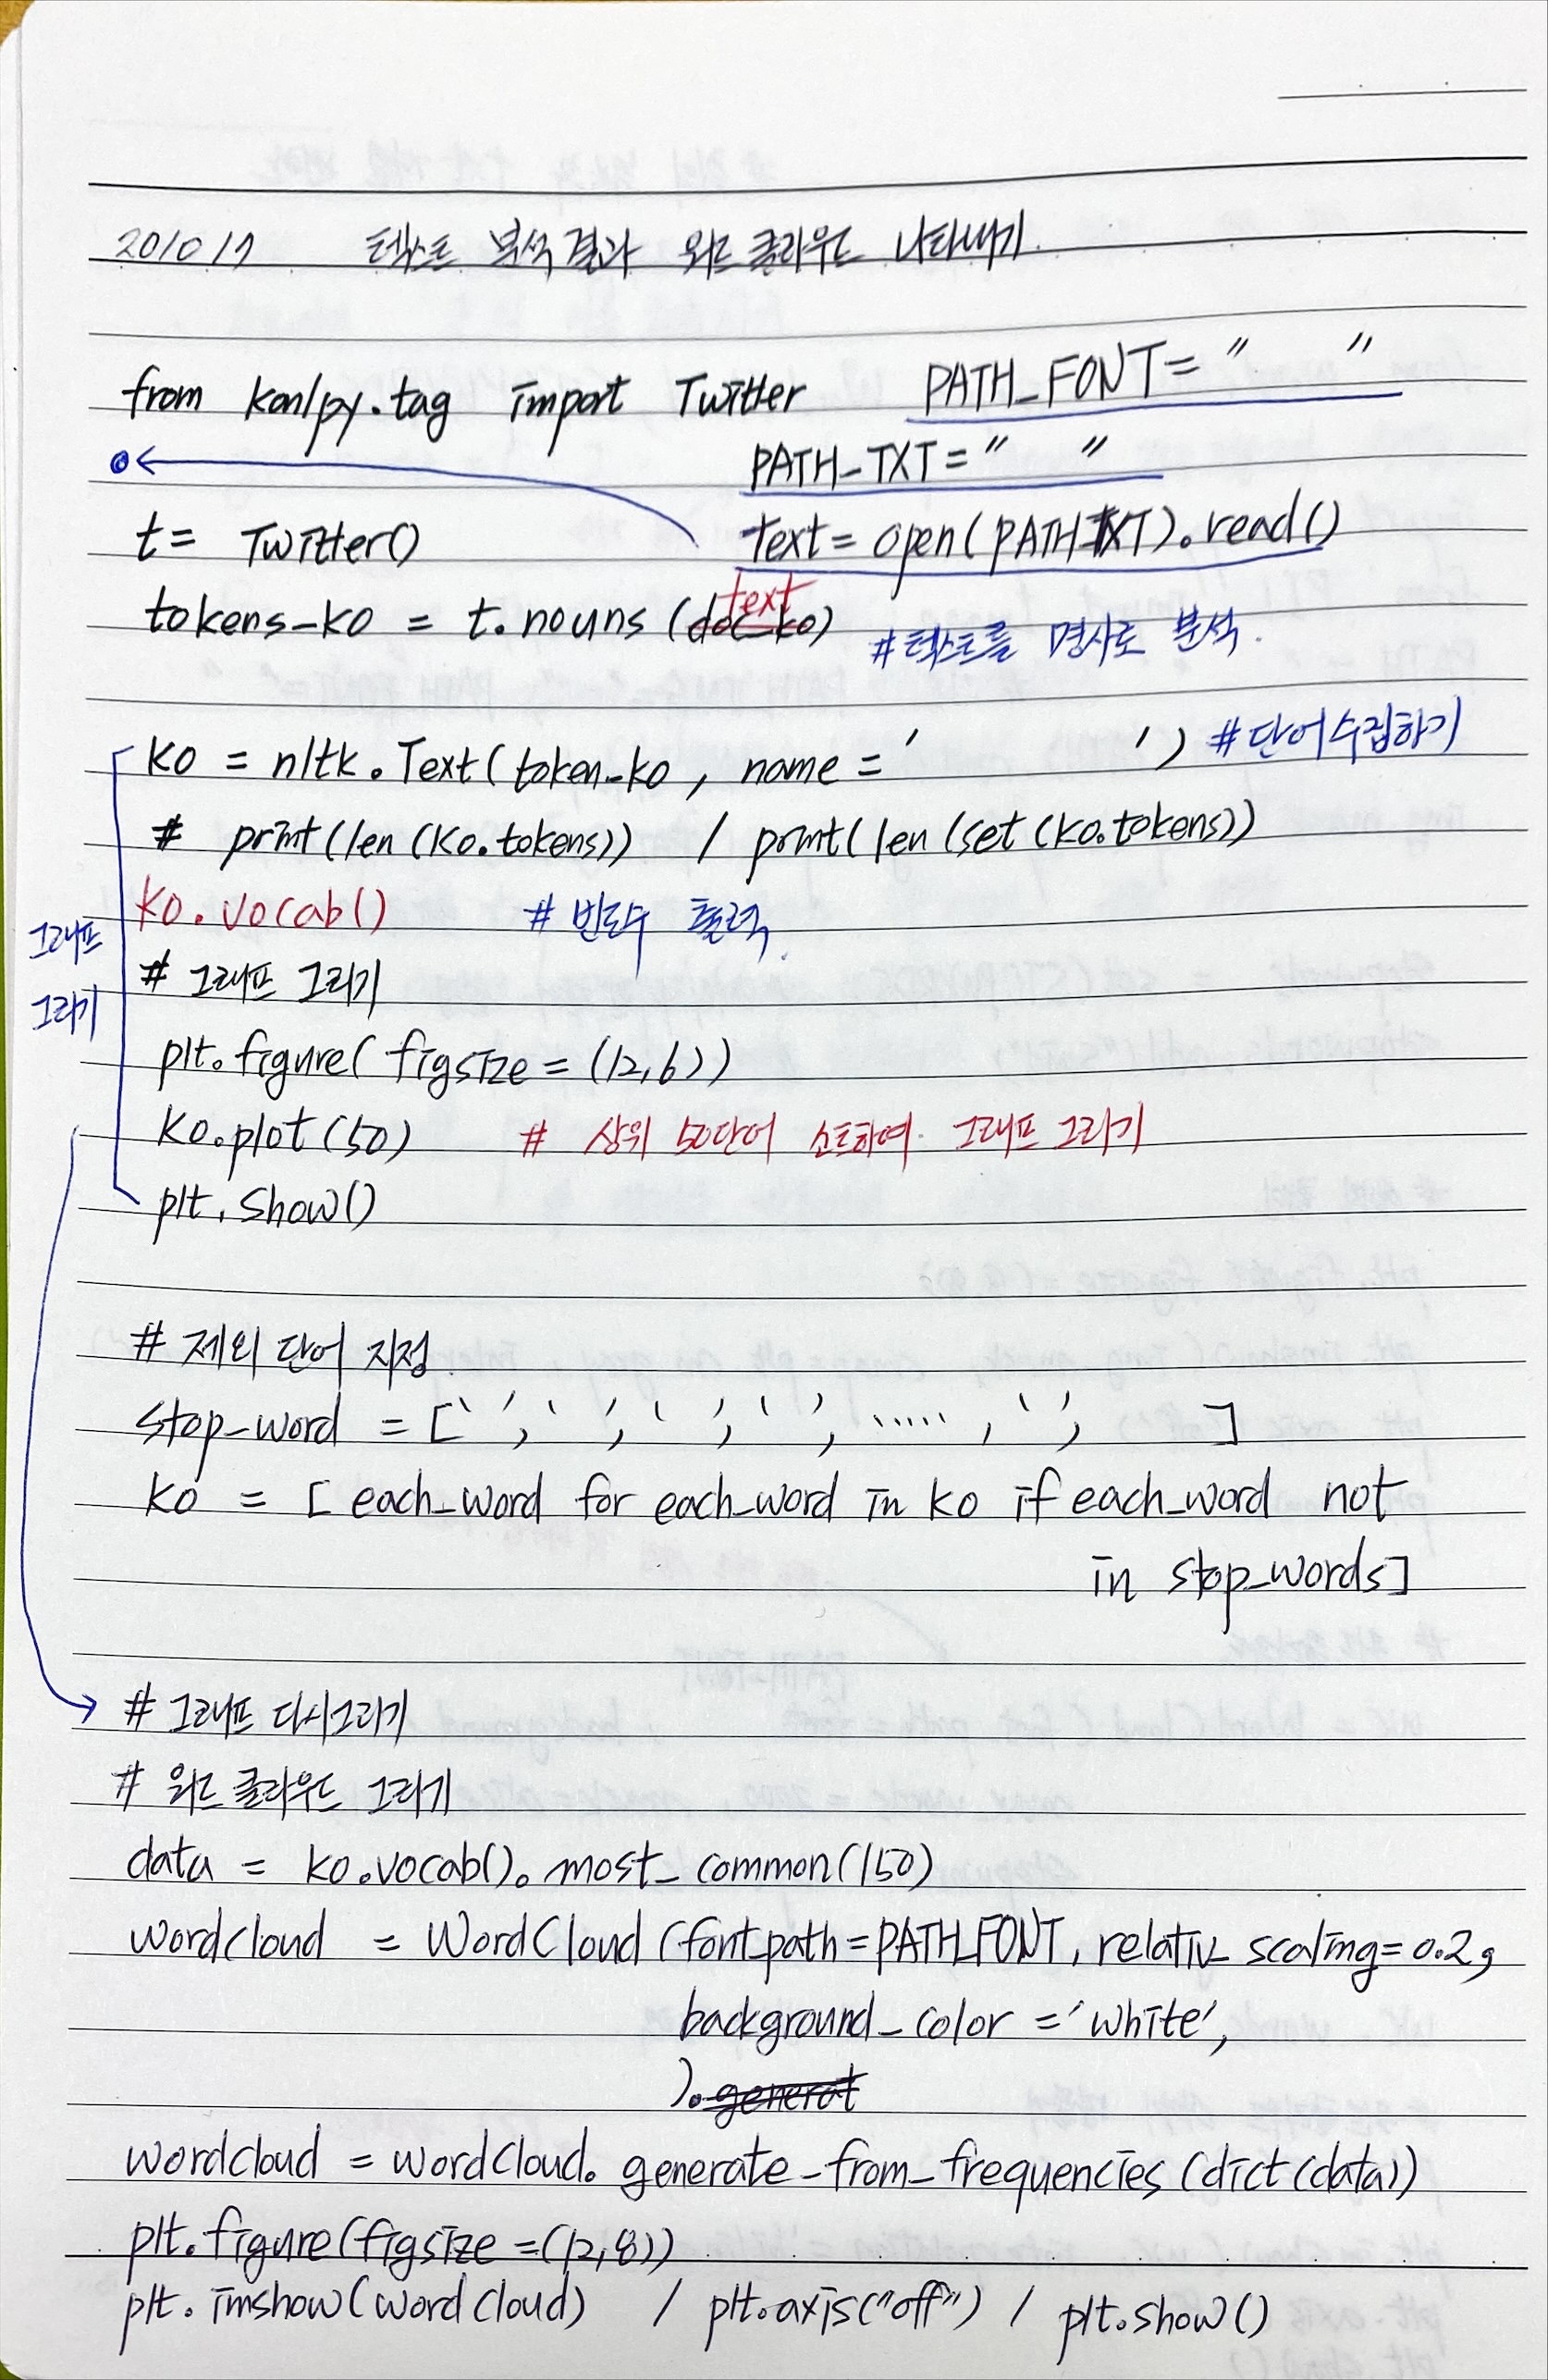 201017 텍스트 분석결과 워드클라우드 나타내기.
from konlpy.tag import Twitter PATH_FONT= " "
PATH_TXT= " "
t= Twitter() Text= open(PATH_TXT).read()
text
tokens_ko = t.nouns (doc_ko) #텍스트를 명사로 분석.
ko = nltk.Text(token_ko, name=' ') #단어수집하기
# print(len(ko.tokens)) / print(len(set(ko.tokens))
ko.vocab() # 빈도수 출력.
그래프
그리기
# 그래프 그리기
plt.figure( figsize = (12,6))
ko.plot(50) # 상위 50단어 소트하여 그래프 그리기
plt.show()
# 제외 단어 지정.
stop_word = [' ', ' ', ' ', ' ', ....., ' ', ]
ko = [ each_word for each_word in ko if each_word not
in stop_words]
# 그래프 다시그리기
# 워드 클라우드 그리기
data = ko.vocab().most_common(150)
wordcloud = WordCloud (font_path=PATH_FONT, relativ_scaling=0.2,
background_color ='white',
).generat
wordcloud = wordcloud.generate_from_frequencies (dict(data))
plt.figure(figsize =(12,8))
plt.imshow(wordcloud) / plt.axis("off") / plt.show()